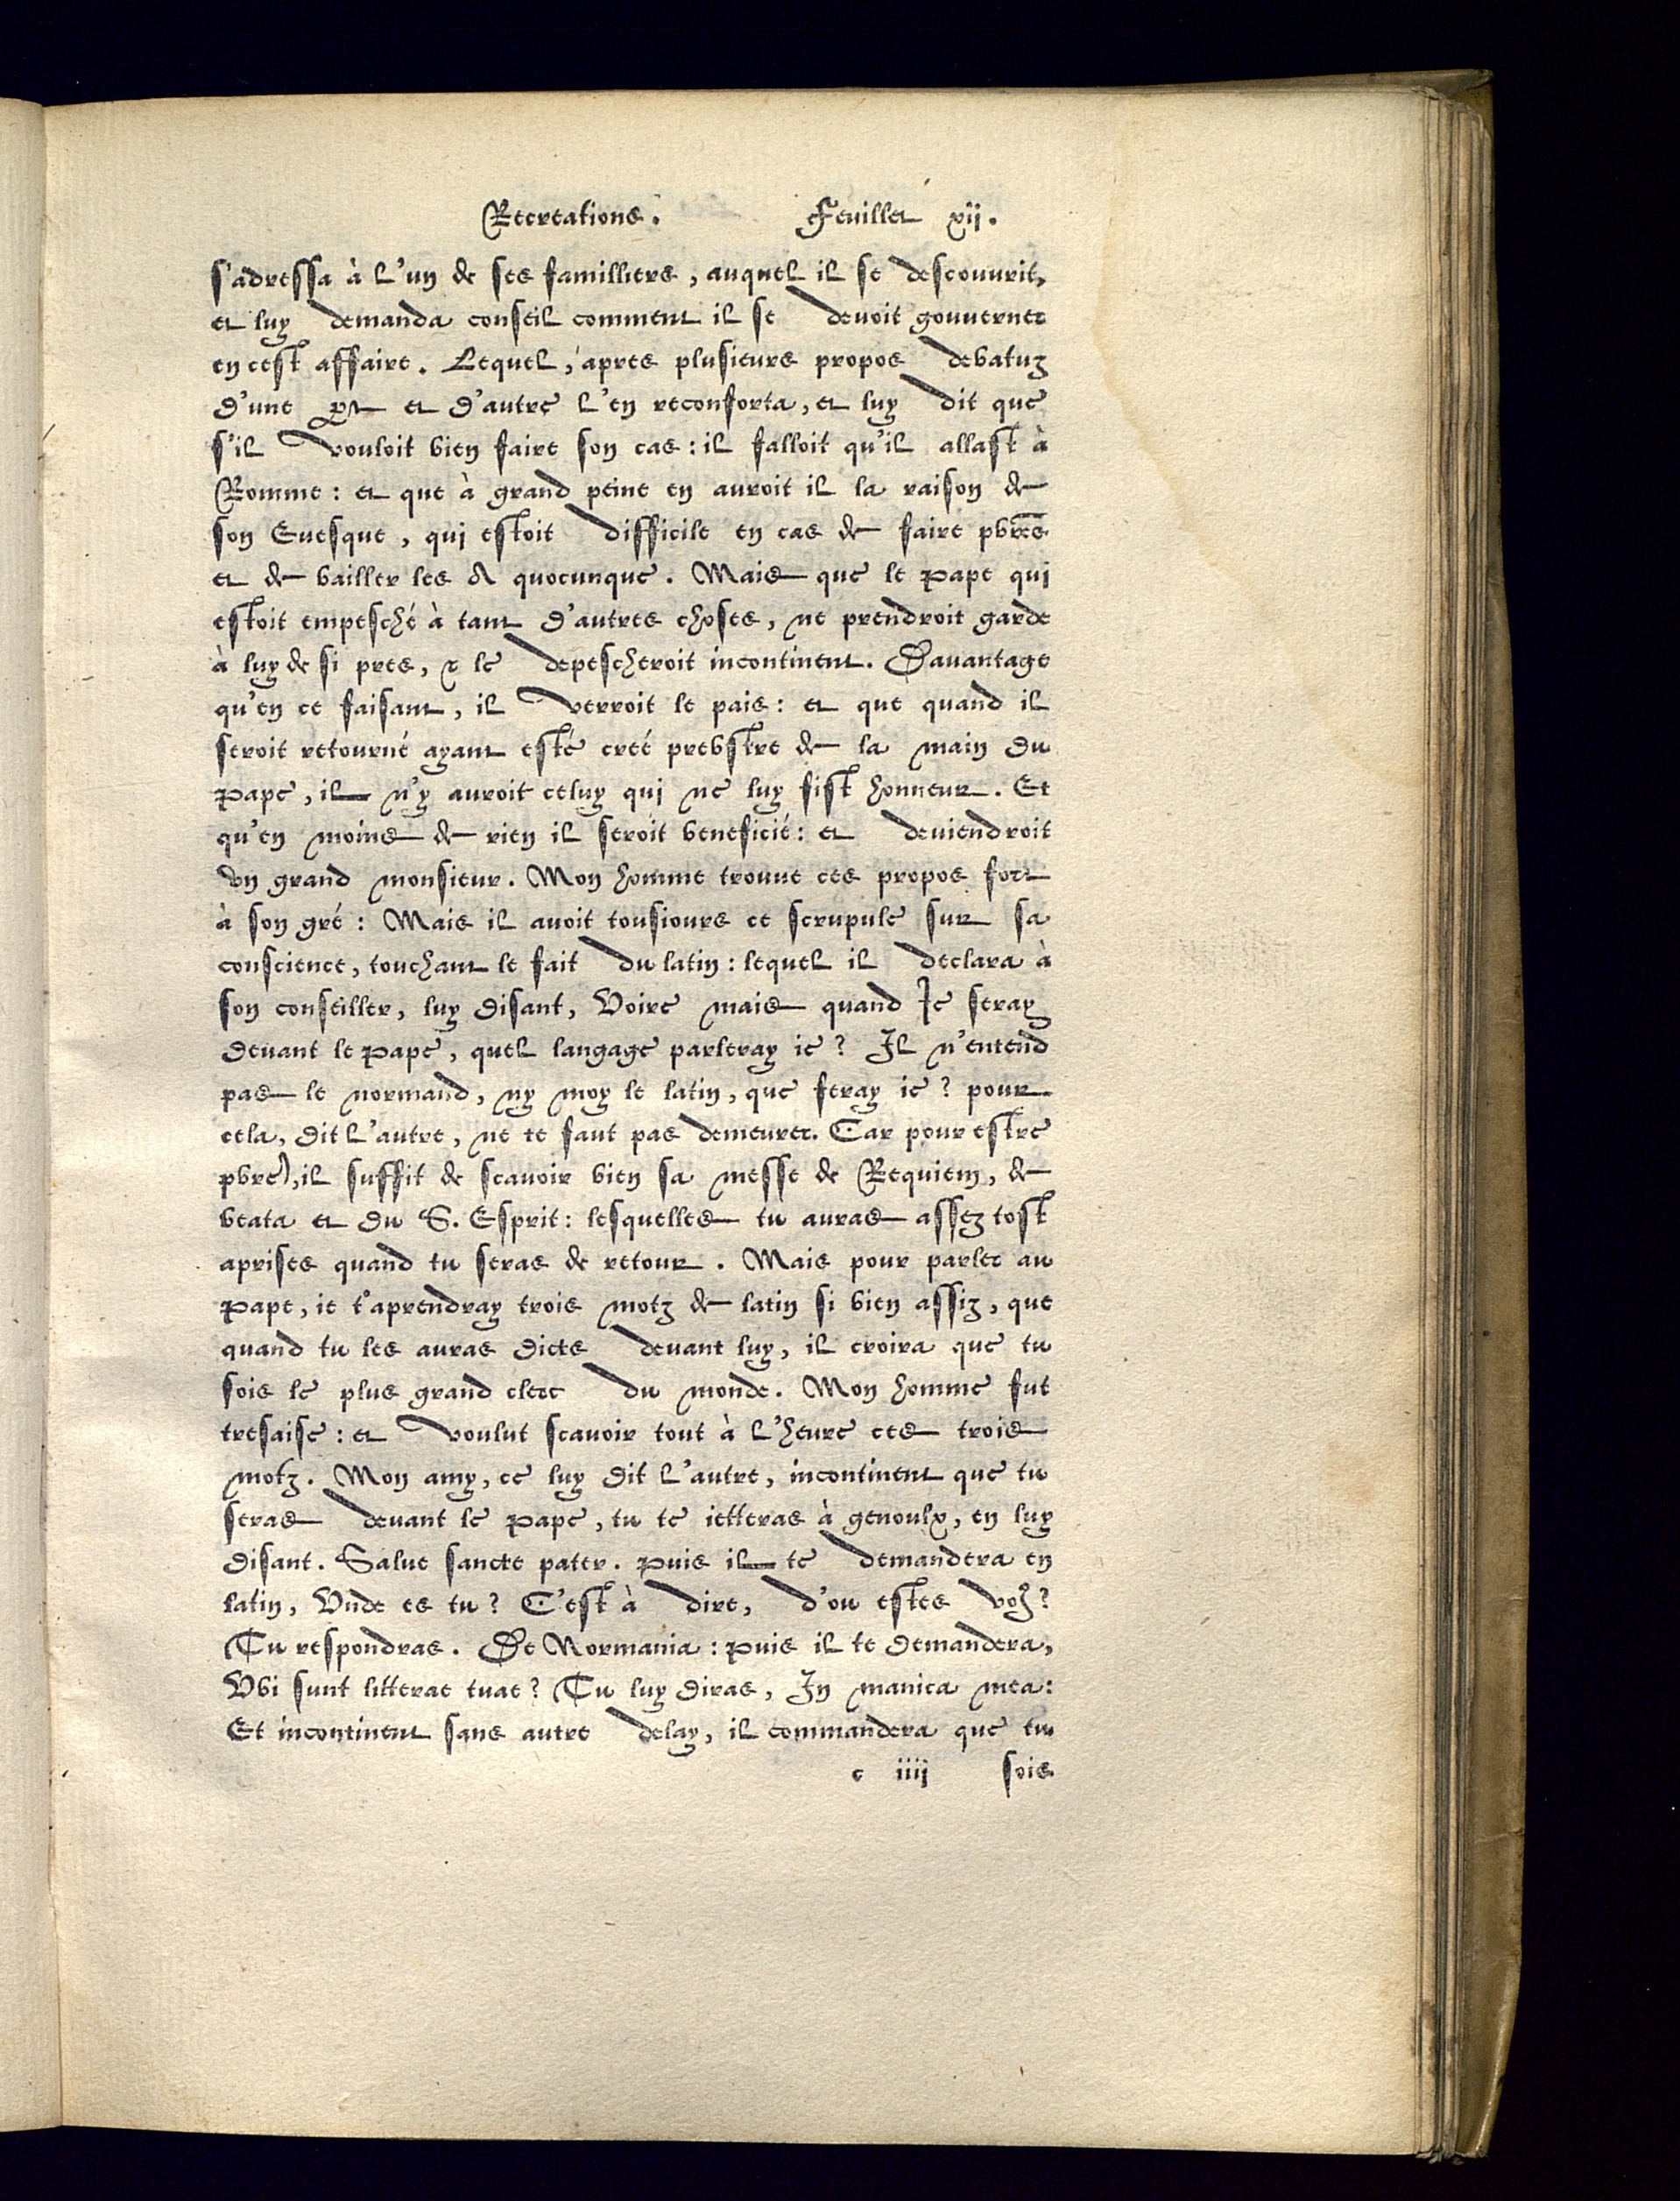 Recreations. Feuillet xij.
s'adressa à l'un de ses familliers, auquel il se descouurit,
et luy demanda conseil comment il se deuoit gouuerner
en cest affaire. Lequel, apres plusieurs propos debatuz
d'une part et d'autre l'en reconforta, et luy dit que
s'il vouloit bien faire son cas: il falloit qu'il allast à
Romme: et que à grand peine en auroit il la raison de
son Euesque, qui estoit difficile en cas de faire pbres
et de bailler les A quocunque. Mais que le Pape qui
estoit empesché à tant d'autres choses, ne prendroit garde
à luy de si pres, & le depescheroit incontinent. Dauantage
qu'en ce faisant, il verroit le pais: et que quand il
seroit retourné ayant esté creé prebstre de la main du
Pape, il n'y auroit celuy qui ne luy fist honneur. Et
qu'en moins de rien il seroit beneficié: et deuiendroit
vn grand monsieur. Mon homme trouue ces propos fort
à son gré: Mais il auoit tousiours ce scrupule sur sa
conscience, touchant le fait du latin: lequel il declara à
son conseiller, luy disant, Voire mais quand Ie seray
deuant le Pape, quel langage parleray ie? Il n'entend
pas le normand, ny moy le latin, que feray ie? pour
cela, dit l'autre, ne te faut pas demeurer. Car pour estre
pbre, il suffit de scauoir bien sa messe de Requiem, de
beata et du S. Esprit: lesquelles tu auras assez tost
aprises quand tu seras de retour. Mais pour parler au
Pape, ie t'aprendray trois motz de latin si bien assiz, que
quand tu les auras dictes deuant luy, il croira que tu
sois le plus grand clerc du monde. Mon homme fut
tresaise: et voulut scauoir tout à l'heure ces trois
motz. Mon amy, ce luy dit l'autre, incontinent que tu
seras deuant le Pape, tu te ietteras à genoulx, en luy
disant. Salue sancte pater. Puis il te demandera en
latin, Vnde es tu? C'est à dire, d'ou estes voꝰ?
Tu respondras. De Normania: Puis il te demandera,
Vbi sunt litterae tuae? Tu luy diras, In manica mea:
Et incontinent sans autre delay, il commandera que tu
c iiij sois